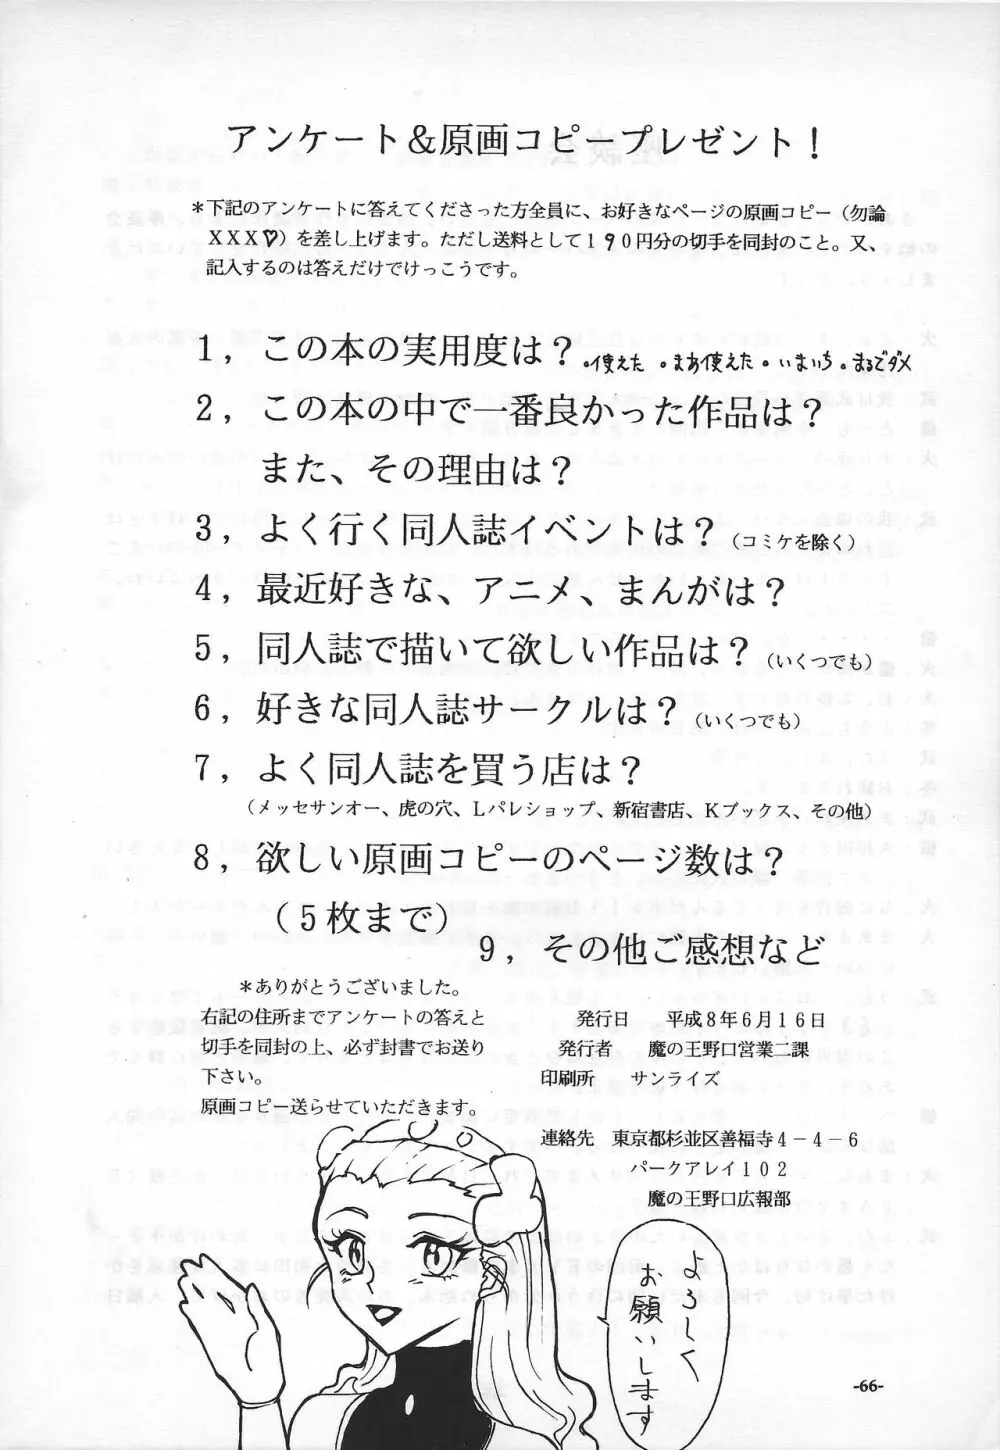 アンケート＆原画コピープレゼント！
＊下記のアンケートに答えてくださった方全員に、お好きなページの原画コピー（勿論
ＸＸＸ♡）を差し上げます。ただし送料として１９０円分の切手を同封のこと。又、
記入するのは答えだけでけっこうです。
１，この本の実用度は？ 。使えた 。まあ使えた 。いまいち 。まるでダメ
２，この本の中で一番良かった作品は？
また、その理由は？
３，よく行く同人誌イベントは？（コミケを除く）
４，最近好きな、アニメ、まんがは？
５，同人誌で描いて欲しい作品は？（いくつでも）
６，好きな同人誌サークルは？（いくつでも）
７，よく同人誌を買う店は？
（メッセサンオー、虎の穴、Ｌパレショップ、新宿書店、Ｋブックス、その他）
８，欲しい原画コピーのページ数は？
（５枚まで）
９，その他ご感想など
＊ありがとうございました。
右記の住所までアンケートの答えと
切手を同封の上、必ず封書でお送り
下さい。
原画コピー送らせていただきます。
発行日　平成８年６月１６日
発行者　魔の王野口営業二課
印刷所　サンライズ
連絡先　東京都杉並区善福寺４－４－６
パークアレイ１０２
魔の王野口広報部
よろしく
お願いします
-66-